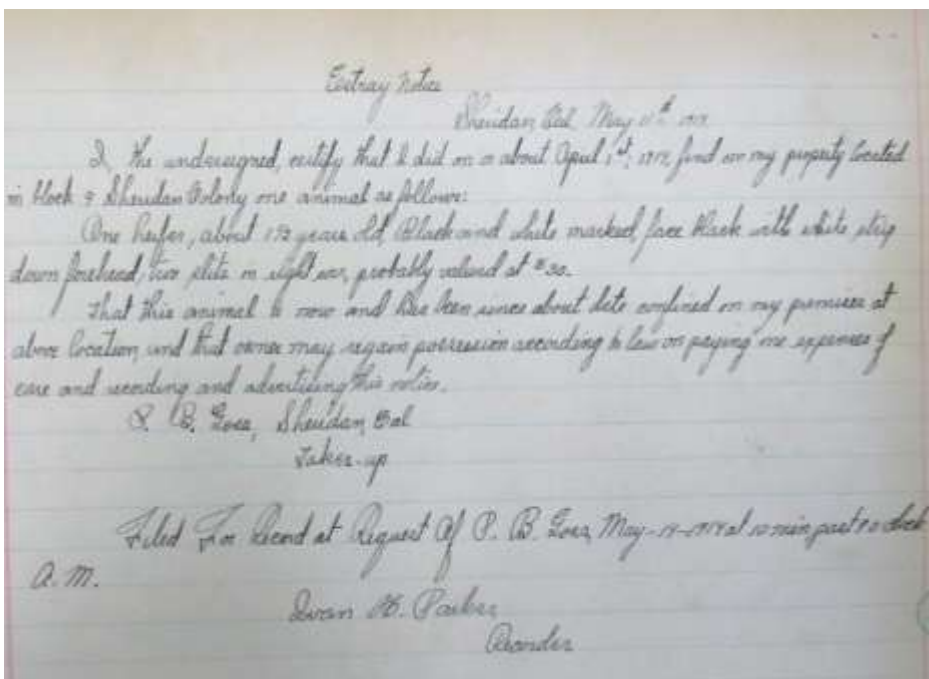 Estray Notice
Sheridan Cal. May
I, the undersigned, certify that I did on or about April 1st, find on my property located
in block 9 Sheridan Colony one animal as follows:
One heifer, about 1½ years old, Black and white marked, face black with white strip
down forehead, two slits in right ear, probably valued at $30.
That this animal is now and has been since about date confined on my premises at
above location, and that owner may regain possession according to law on paying me expenses of
care and recording and advertising this notice.
P. B. Goes, Sheridan, Cal
Taker-up
Filed For Record at Request Of P. B. Goes, May at 10 min past o'clock
A.M.
Ivan H. Parker
Recorder